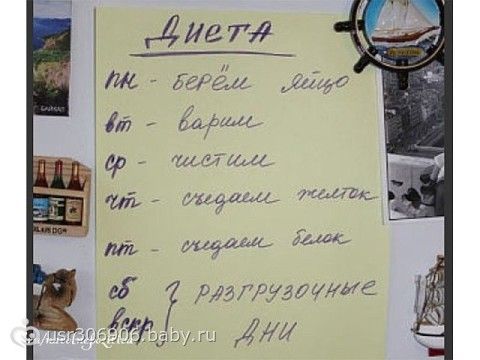 ДИЕТА
пн - берём яйцо
вт - варим
ср - чистим
чт - съедаем желток
пт - съедаем белок
сб } РАЗГРУЗОЧНЫЕ
вскр } ДНИ
usr306906.baby.ru